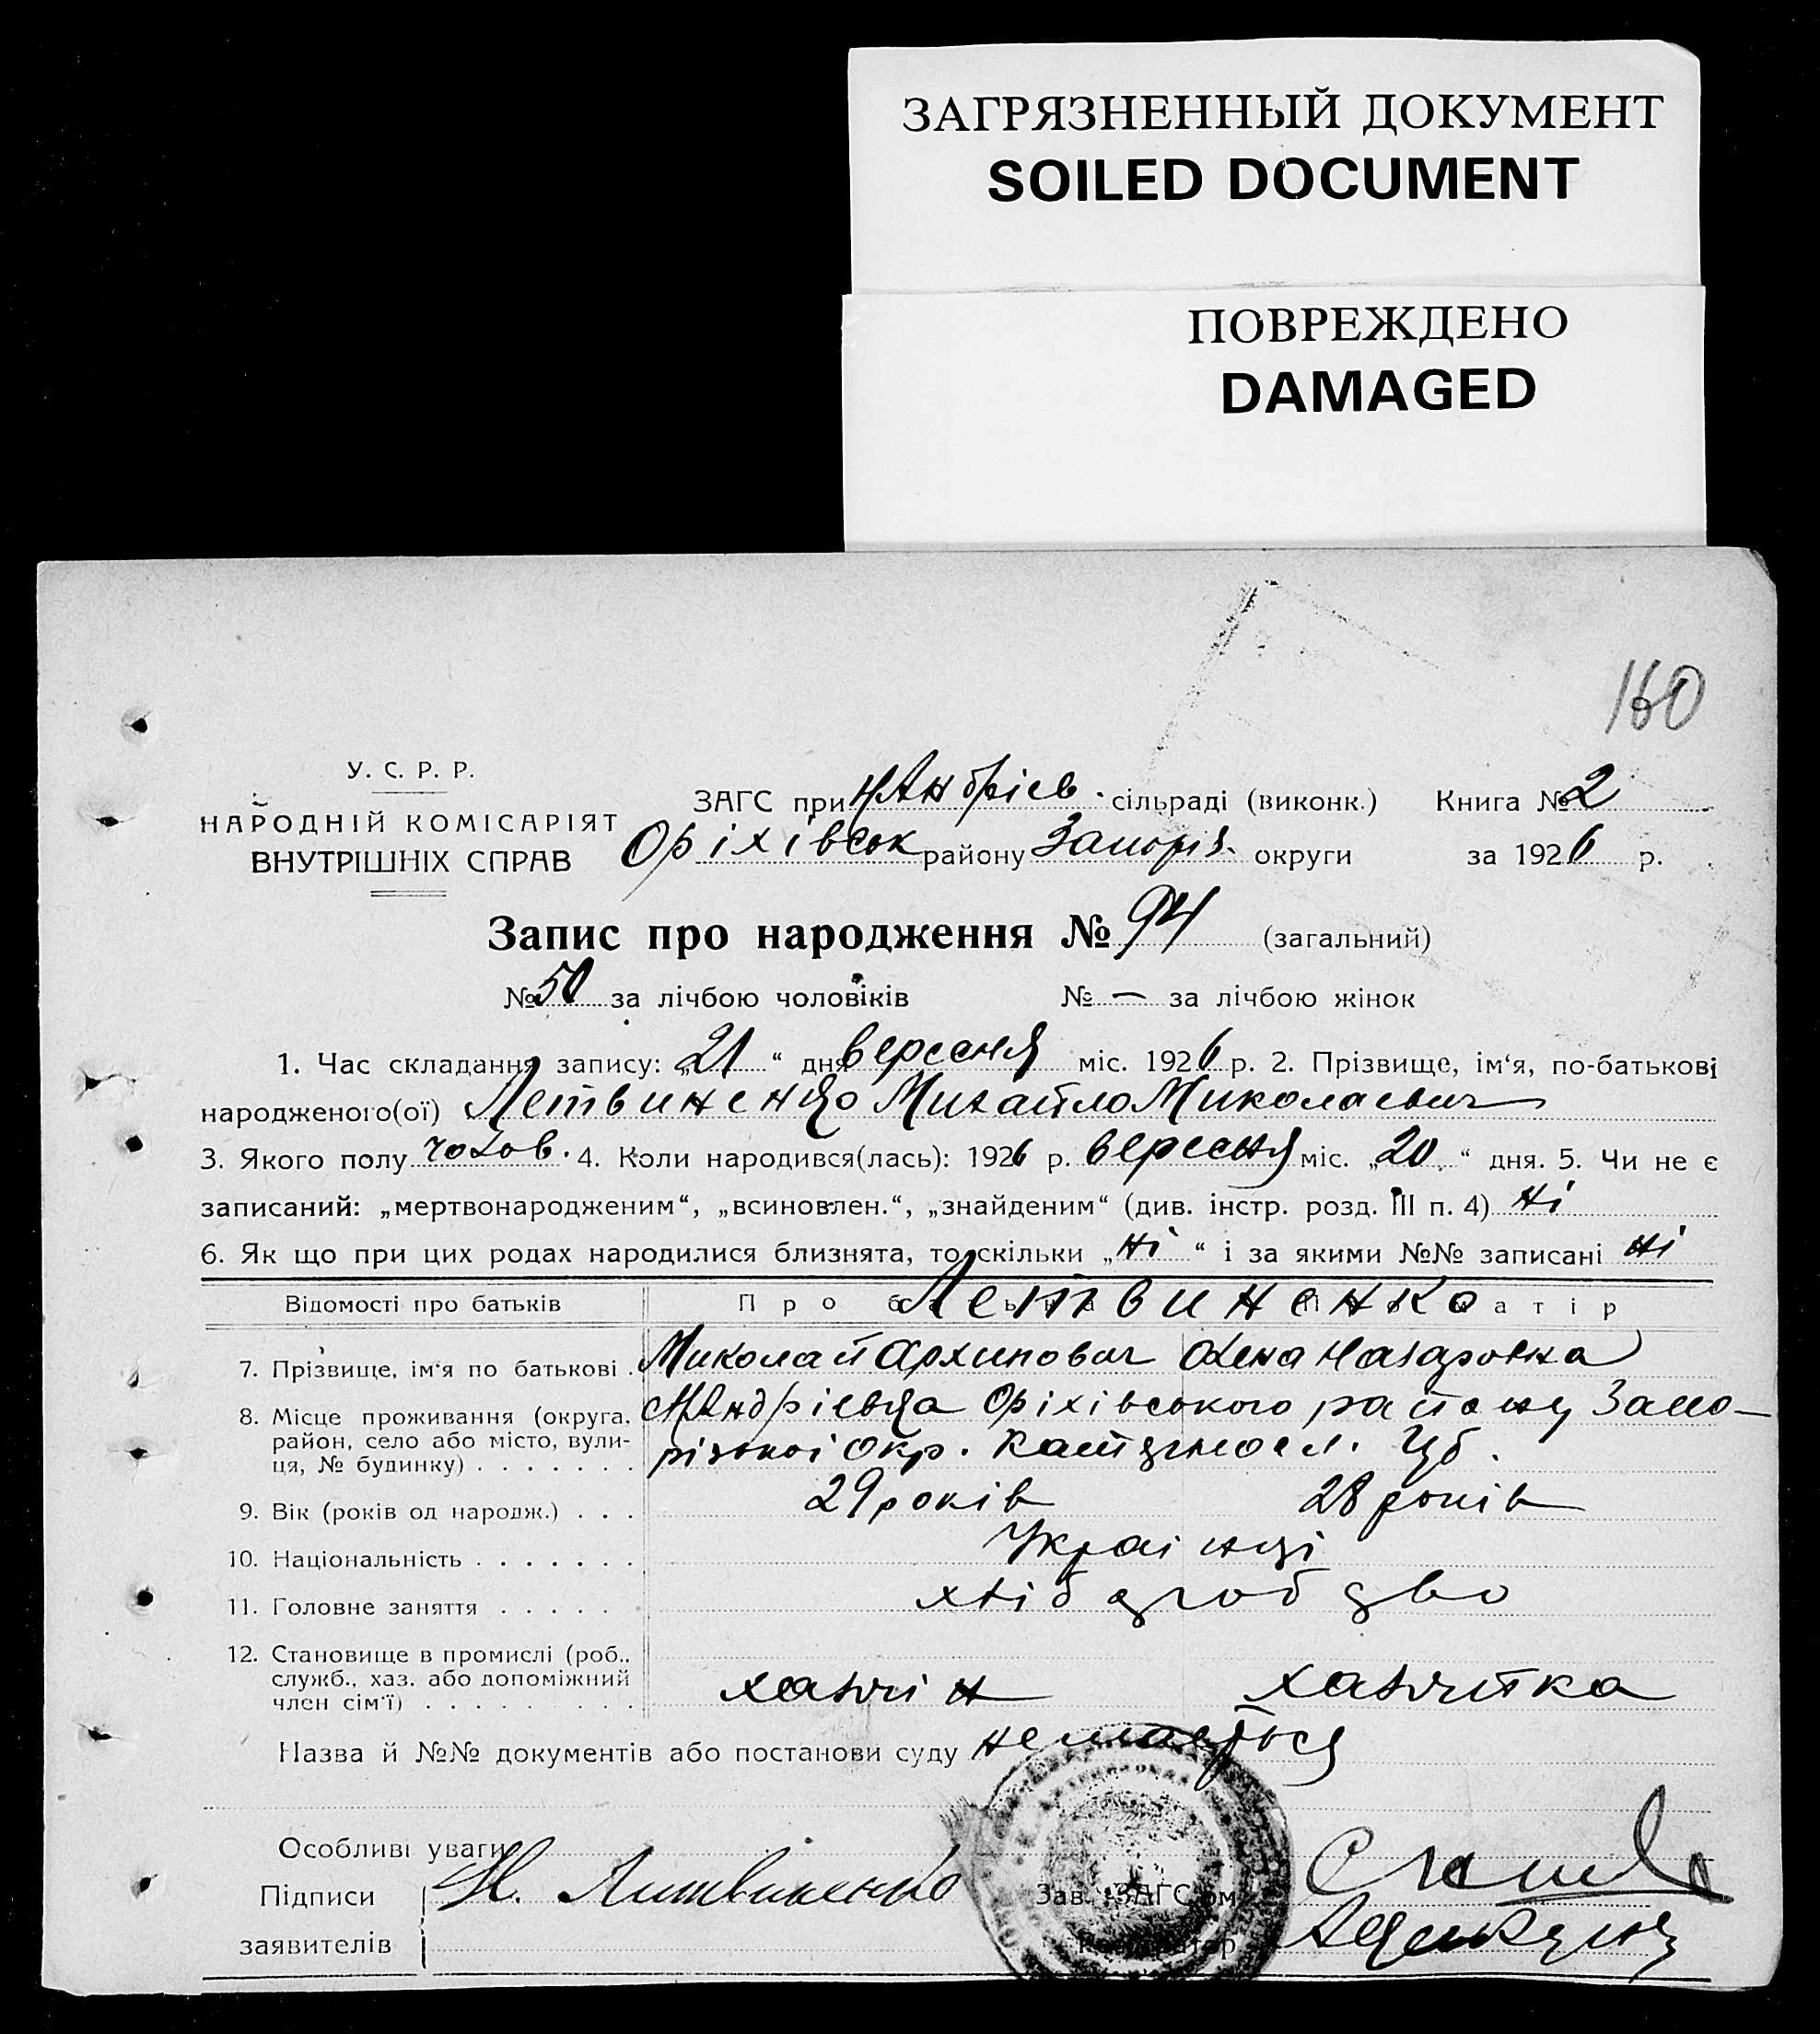 ЗАГРЯЗНЕННЫЙ ДОКУМЕНТ
SOILED DOCUMENT
ПОВРЕЖДЕНО
DAMAGED
160
У. С. Р. Р.
НАРОДНІЙ КОМІСАРІЯТ
ВНУТРІШНІХ СПРАВ
ЗАГС при Н Андрієв. сільраді (виконк.) Книга № 2
Оріхівськ району Запоріз. округи за 1926 р.
Запис про народження № 94 (загальний)
№ 50 за лічбою чоловіків № — за лічбою жінок
1. Час складання запису: „21“ дня вересня міс. 1926 р. 2. Прізвище, ім‘я, по-батькові
народженого(ої) Летвиненко Михайло Миколаевич
3. Якого полу чолов. 4. Коли народився(лась): 1926 р. вересня міс. „20“ дня. 5. Чи не є
записаний: „мертвонародженим“, „всиновлен.“, „знайденим“ (див. інстр. розд. III п. 4) ні
6. Як що при цих родах народилися близнята, то скільки „ні“ і за якими №№ записані ні
Відомості про батьків Про батька Про матір
Летвиненко
7. Прізвище, ім‘я по батькові . Миколай Архипович Олена Назаровна
8. Місце проживання (округа, район, село або місто, вулиця, № будинку) . . . . . . . Оріхівського району Запо-
різької окр.
9. Вік (років од народж.) . . . 29 років 28 років
10. Національність . . . . . . . Украінці
11. Головне заняття . . . . .
12. Становище в промислі (роб., служб., хаз. або допоміжний член сім‘ї) . . . . . . . . . хазяін хазяйка
Назва й №№ документів або постанови суду немаеться
Особливі уваги
Підписи заявителів Н. Литвиненко
Зав. ЗАГС‘ом
Реєстратор